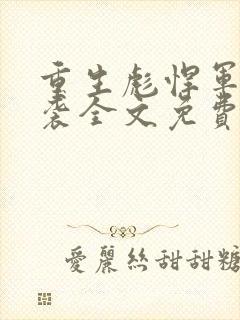 重生彪悍軍
襲全文免費
愛麗絲甜甜糖